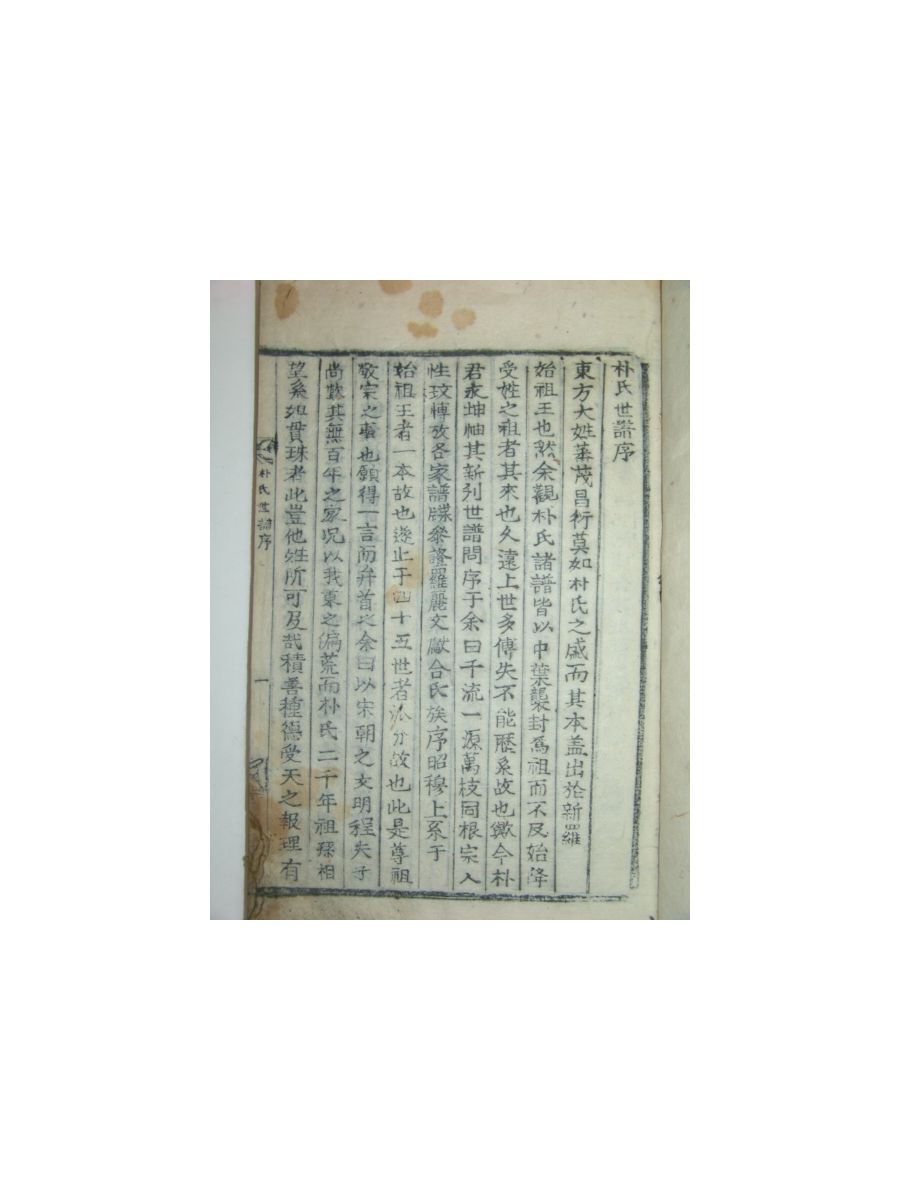 朴氏世譜序
東方大姓蕃茂昌衍莫如朴氏之盛而其本盖出於新羅
始祖王也然余觀朴氏諸譜皆以中葉襲封爲祖而不及始降
受姓之祖者其來也久遠上世多傳失不能歷系故也歟今朴
君永坤袖其新刋世譜問序于余曰千流一源萬枝同根宗人
性玟博攷各家譜牒叅證羅麗文獻合氏族序昭穆上系于
始祖王者一本故也遂止于四十五世者派分故也此是尊祖
敬宗之事也願得一言而弁首之余曰以宋朝之文明程夫子
尚歎其無百年之家况以我東之偏荒而朴氏二千年祖孫相
望系如貫珠者此豈他姓所可及哉積善種德受天之報理有
朴氏世譜序
一